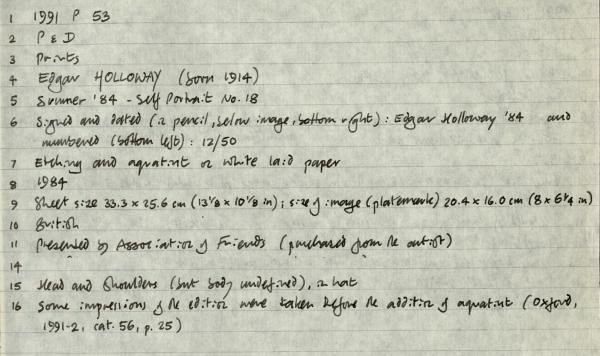 1 1991 P 53
2 P & D
3 Prints
4 Edgar HOLLOWAY (born 1914)
5 Summer '84 - Self Portrait No. 18
6 Signed and dated (in pencil, below image, bottom right) : Edgar Holloway '84 and
numbered (bottom left) : 12/50
7 Etching and aquatint on white laid paper
8 1984
9 Sheet size 33.3 x 25.6 cm (13 1/8 x 10 1/8 in) ; size of image (platemark) 20.4 x 16.0 cm (8 x 6 1/4 in)
10 British
11 Presented by Association of Friends (purchased from the artist)
14
15 Head and Shoulders (but body undefined), in hat
16 Some impressions of the edition were taken before the addition of aquatint (Oxford,
1991-2, cat. 56, p. 25)